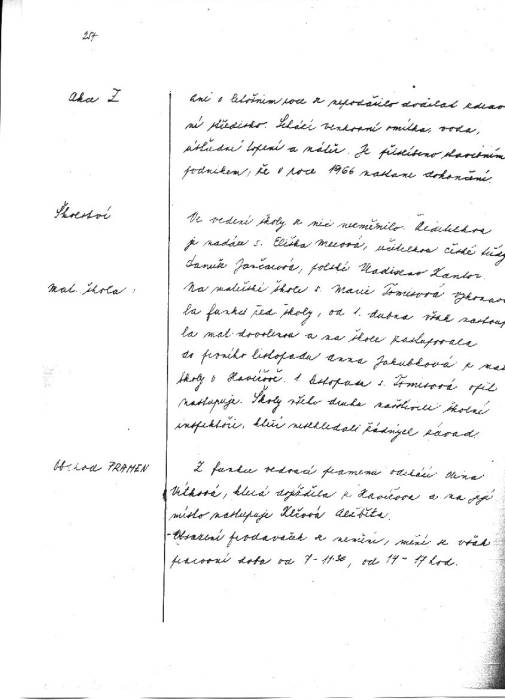 257
Akce Z
ani v letošním roce se nepodařilo dodělat zdravo
ní středisko. Schází venkovní omítka, voda,
ústřední topení a nátěr. Je přislíbeno stavebním
podnikem, že v roce 1966 nastane dokončení.
Školství
Ve vedení školy se nic nezměnilo. Ředitelkou
je nadále s. Eliška učitelkou české třídy
Jančarová, polské Vladislav Kantor.
mat. škola:
Na mateřské škole s. Marie Tomisová vykonáva
la funkci řed. školy, od 1. dubna však nastou
la mat. dovolenou a na škole zastupovala
do prvního listopadu Anna Jakubková z mat
školy v Havířově. 1 listopadu s. Tomisová opět
nastupuje. Školy druha navštívili školní
inspektoři, kteří neshledali žádných závad.
Obchod PRAMEN
Z funkce vedoucí pramenu odchází
Vítková, která dojížděla z Havířova a na její
místo nastupuje Alžběta.
- Obsazení prodavaček se nemění, mění se však
pracovní doba od 7 - 11.30, od 14 - 17 hod.